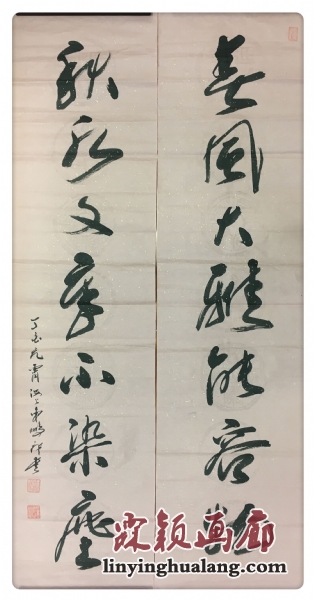 春風大雅能容物
秋水文章不染塵
丁酉元宵
颖画廊
linyinghualang.com